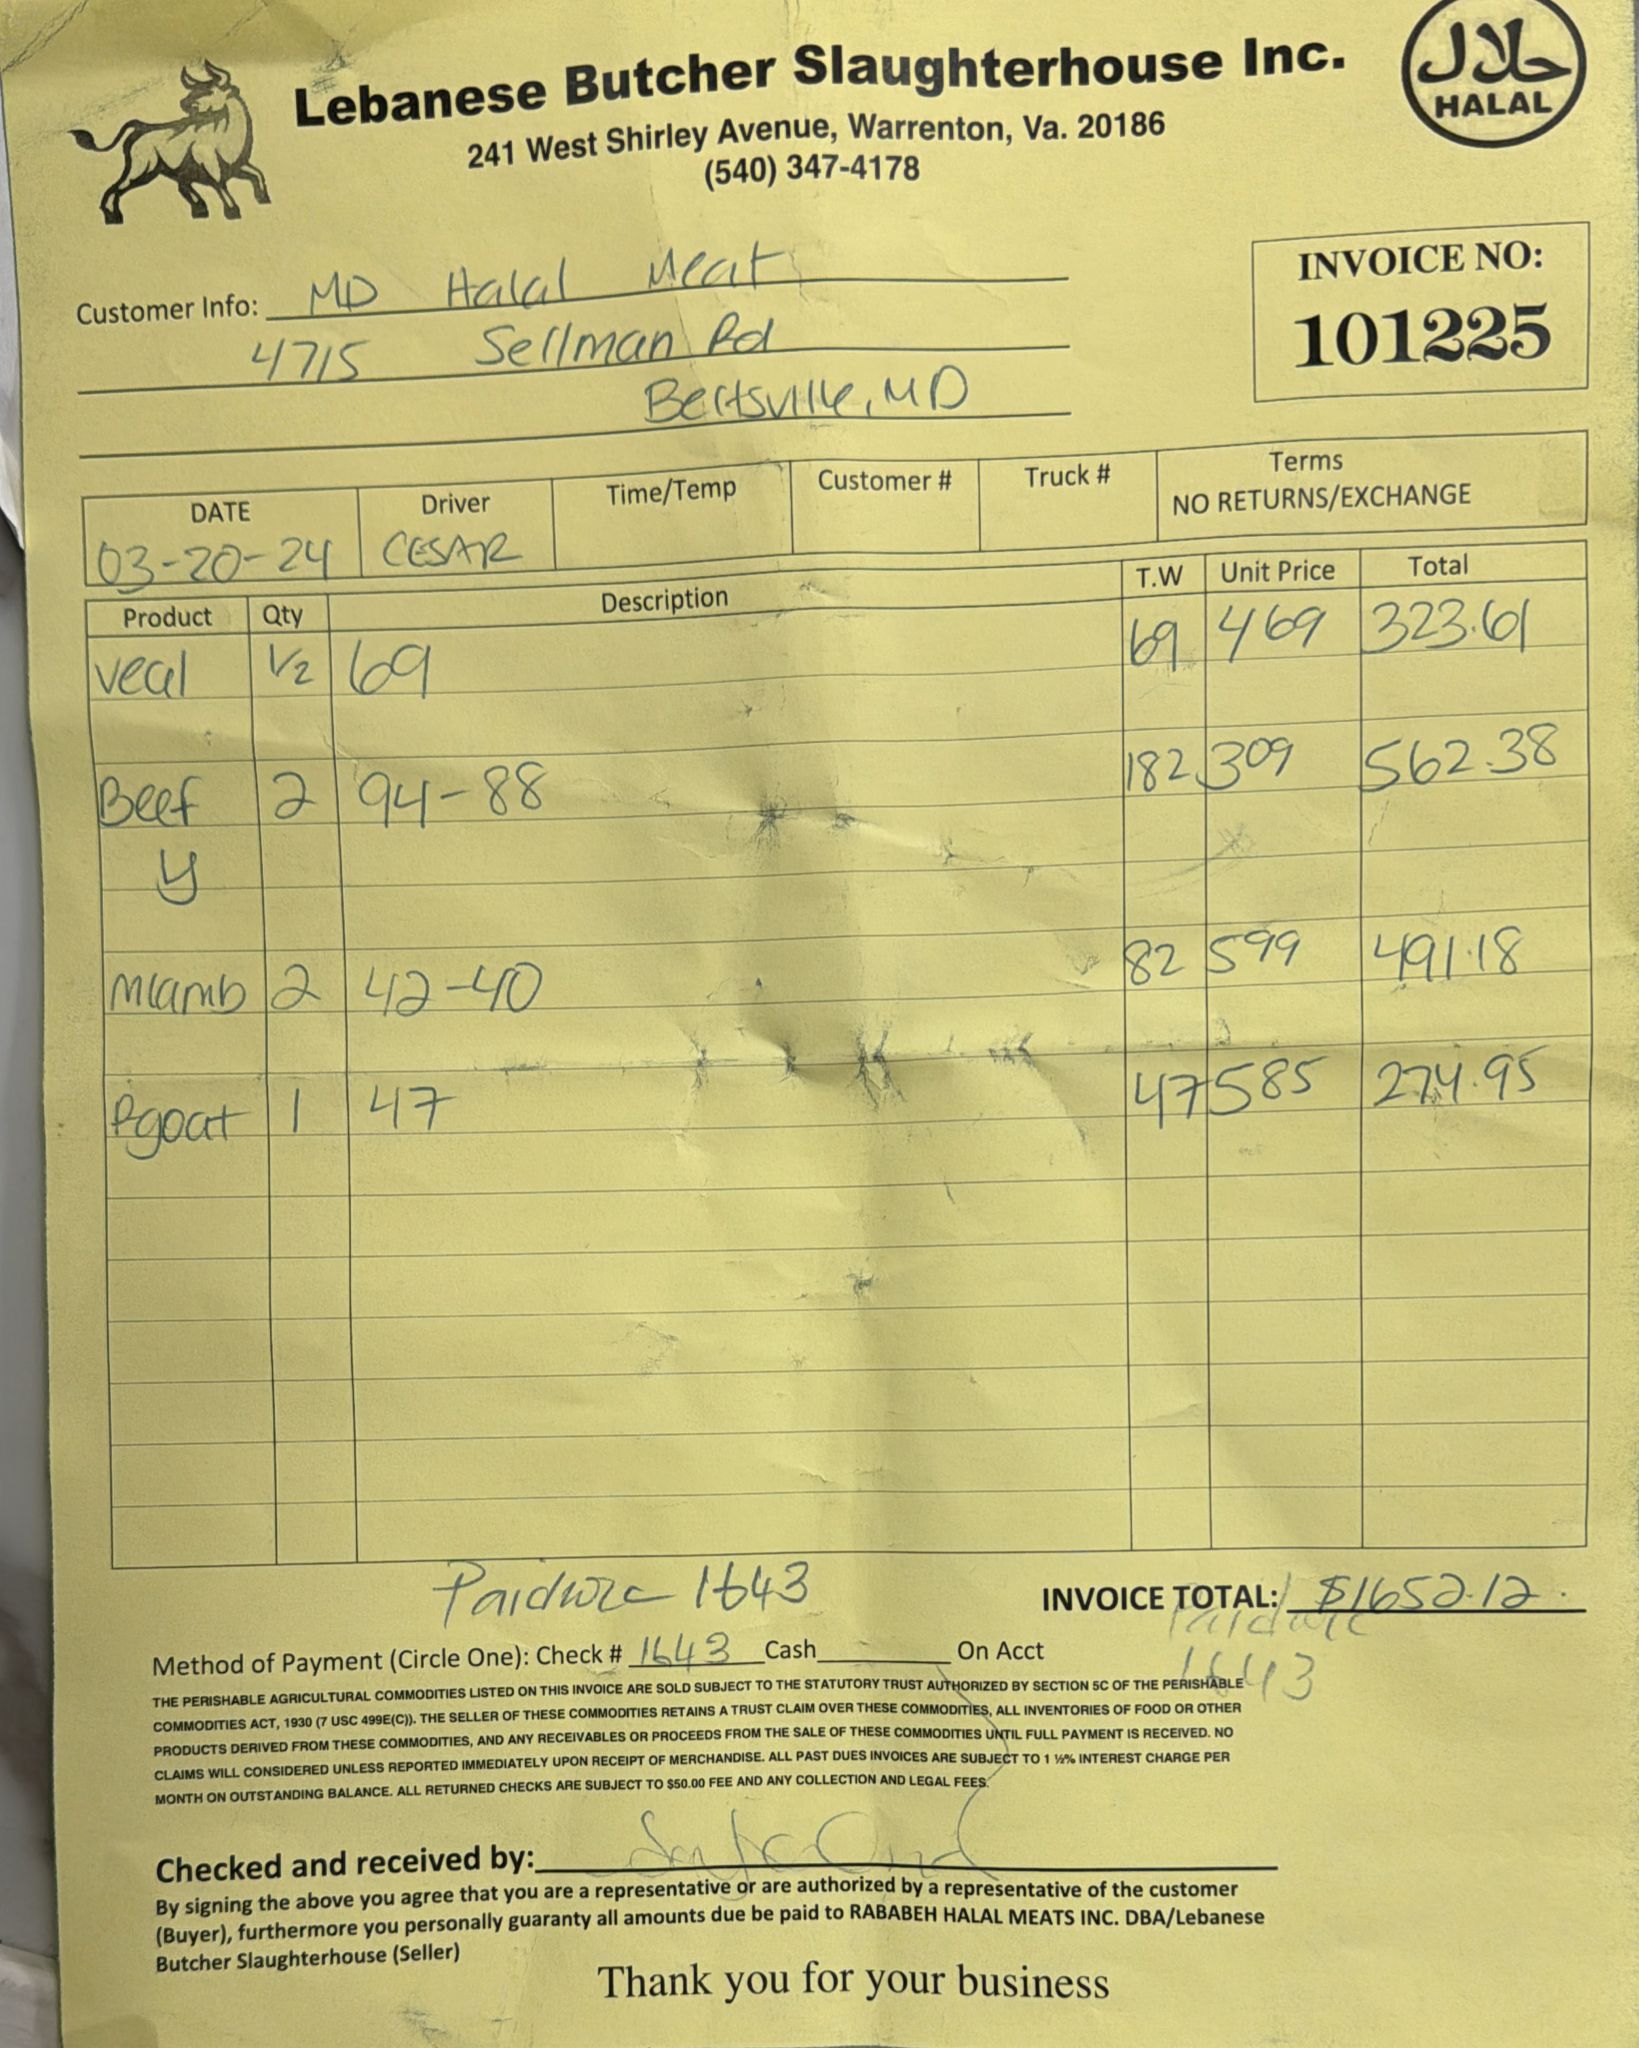 Lebanese Butcher Slaughterhouse Inc.
241 West Shirley Avenue, Warrenton, Va. 20186
(540) 347-4178
حلال
HALAL
INVOICE NO:
101225
Customer Info: MD Halal Meat
4715 Sellman Rd
Beltsville, MD
DATE Driver Time/Temp Customer # Truck # Terms
NO RETURNS/EXCHANGE
03-20-24 CESAR
Product Qty Description T.W Unit Price Total
veal 1/2 69 69 469 323.61
Beef 2 94-88 182 309 562.38
y
Mlamb 2 42-40 82 599 491.18
Pgoat 1 47 47 585 274.95
1643
INVOICE TOTAL: $1652.12
Method of Payment (Circle One): Check # 1643 Cash On Acct
1643
THE PERISHABLE AGRICULTURAL COMMODITIES LISTED ON THIS INVOICE ARE SOLD SUBJECT TO THE STATUTORY TRUST AUTHORIZED BY SECTION 5C OF THE PERISHABLE
COMMODITIES ACT, 1930 (7 USC 499E(C)). THE SELLER OF THESE COMMODITIES RETAINS A TRUST CLAIM OVER THESE COMMODITIES, ALL INVENTORIES OF FOOD OR OTHER
PRODUCTS DERIVED FROM THESE COMMODITIES, AND ANY RECEIVABLES OR PROCEEDS FROM THE SALE OF THESE COMMODITIES UNTIL FULL PAYMENT IS RECEIVED. NO
CLAIMS WILL CONSIDERED UNLESS REPORTED IMMEDIATELY UPON RECEIPT OF MERCHANDISE. ALL PAST DUES INVOICES ARE SUBJECT TO 1 ½% INTEREST CHARGE PER
MONTH ON OUTSTANDING BALANCE. ALL RETURNED CHECKS ARE SUBJECT TO $50.00 FEE AND ANY COLLECTION AND LEGAL FEES.
Checked and received by:
By signing the above you agree that you are a representative or are authorized by a representative of the customer
(Buyer), furthermore you personally guaranty all amounts due be paid to RABABEH HALAL MEATS INC. DBA/Lebanese
Butcher Slaughterhouse (Seller)
Thank you for your business